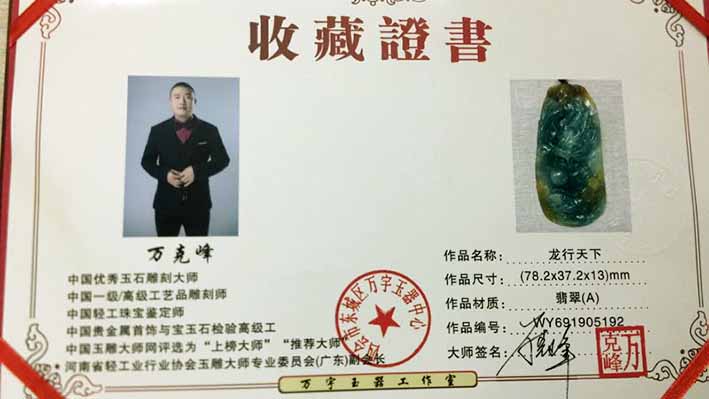 收藏證書
万克峰
中国优秀玉石雕刻大师
中国一级/高级工艺品雕刻师
中国轻工珠宝鉴定师
中国贵金属首饰与宝玉石检验高级工
中国玉雕大师网评选为“上榜大师”“推荐大师”
河南省轻工业行业协会玉雕大师专业委员会(广东)副会长
作品名称: 龙行天下
作品尺寸: (78.2x37.2x13)mm
作品材质: 翡翠(A)
作品编号: WY691905192
大师签名:
万克峰
四会市东城区万宇玉器中心
万宇玉器工作室